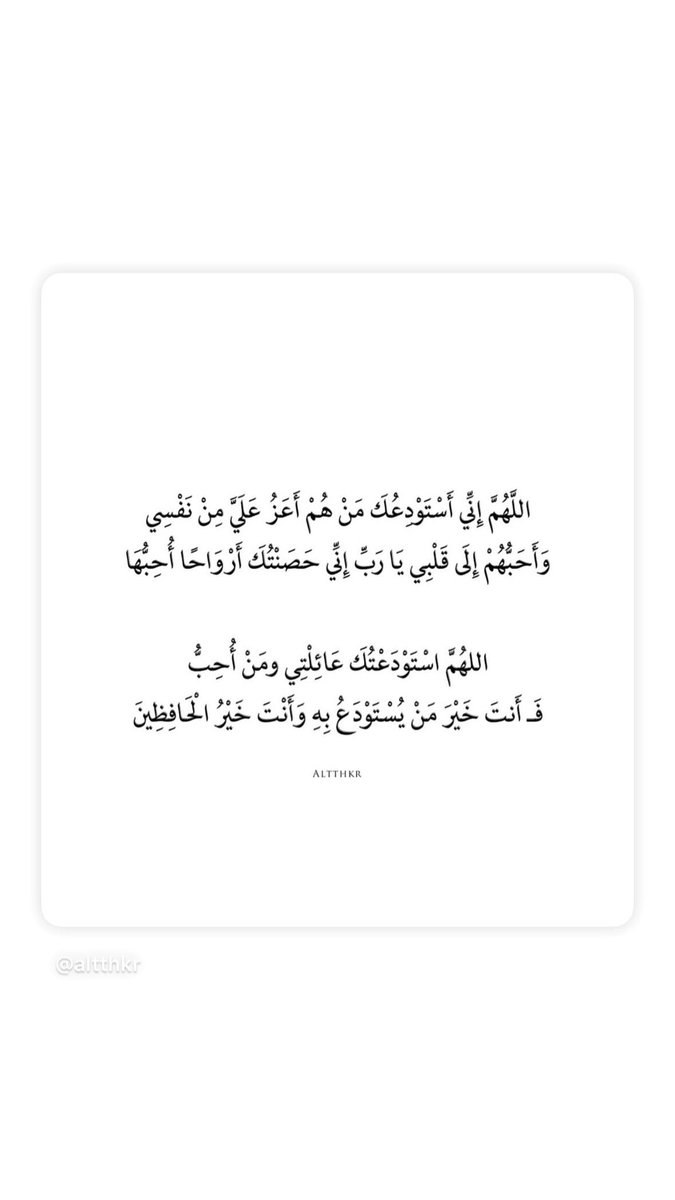 اللَّهُمَّ إِنِّي أَسْتَوْدِعُكَ مَنْ هُمْ أَعَزُ عَلَيَّ مِنْ نَفْسِي
وَأَحَبُّهُمْ إِلَى قَلْبِي يَا رَبِّ إِنِّي حَصَنْتُكَ أَرْوَاحًا أُحِبُّهَا
اللهُمَّ اسْتَوْدَعْتُكَ عَائِلْتِي ومَنْ أُحِبُّ
فَـ أَنتَ خَيْرَ مَنْ يُسْتَوْدَعُ بِهِ وَأَنْتَ خَيْرُ الْحَافِظِينَ
ALTTHKR
@altthkr